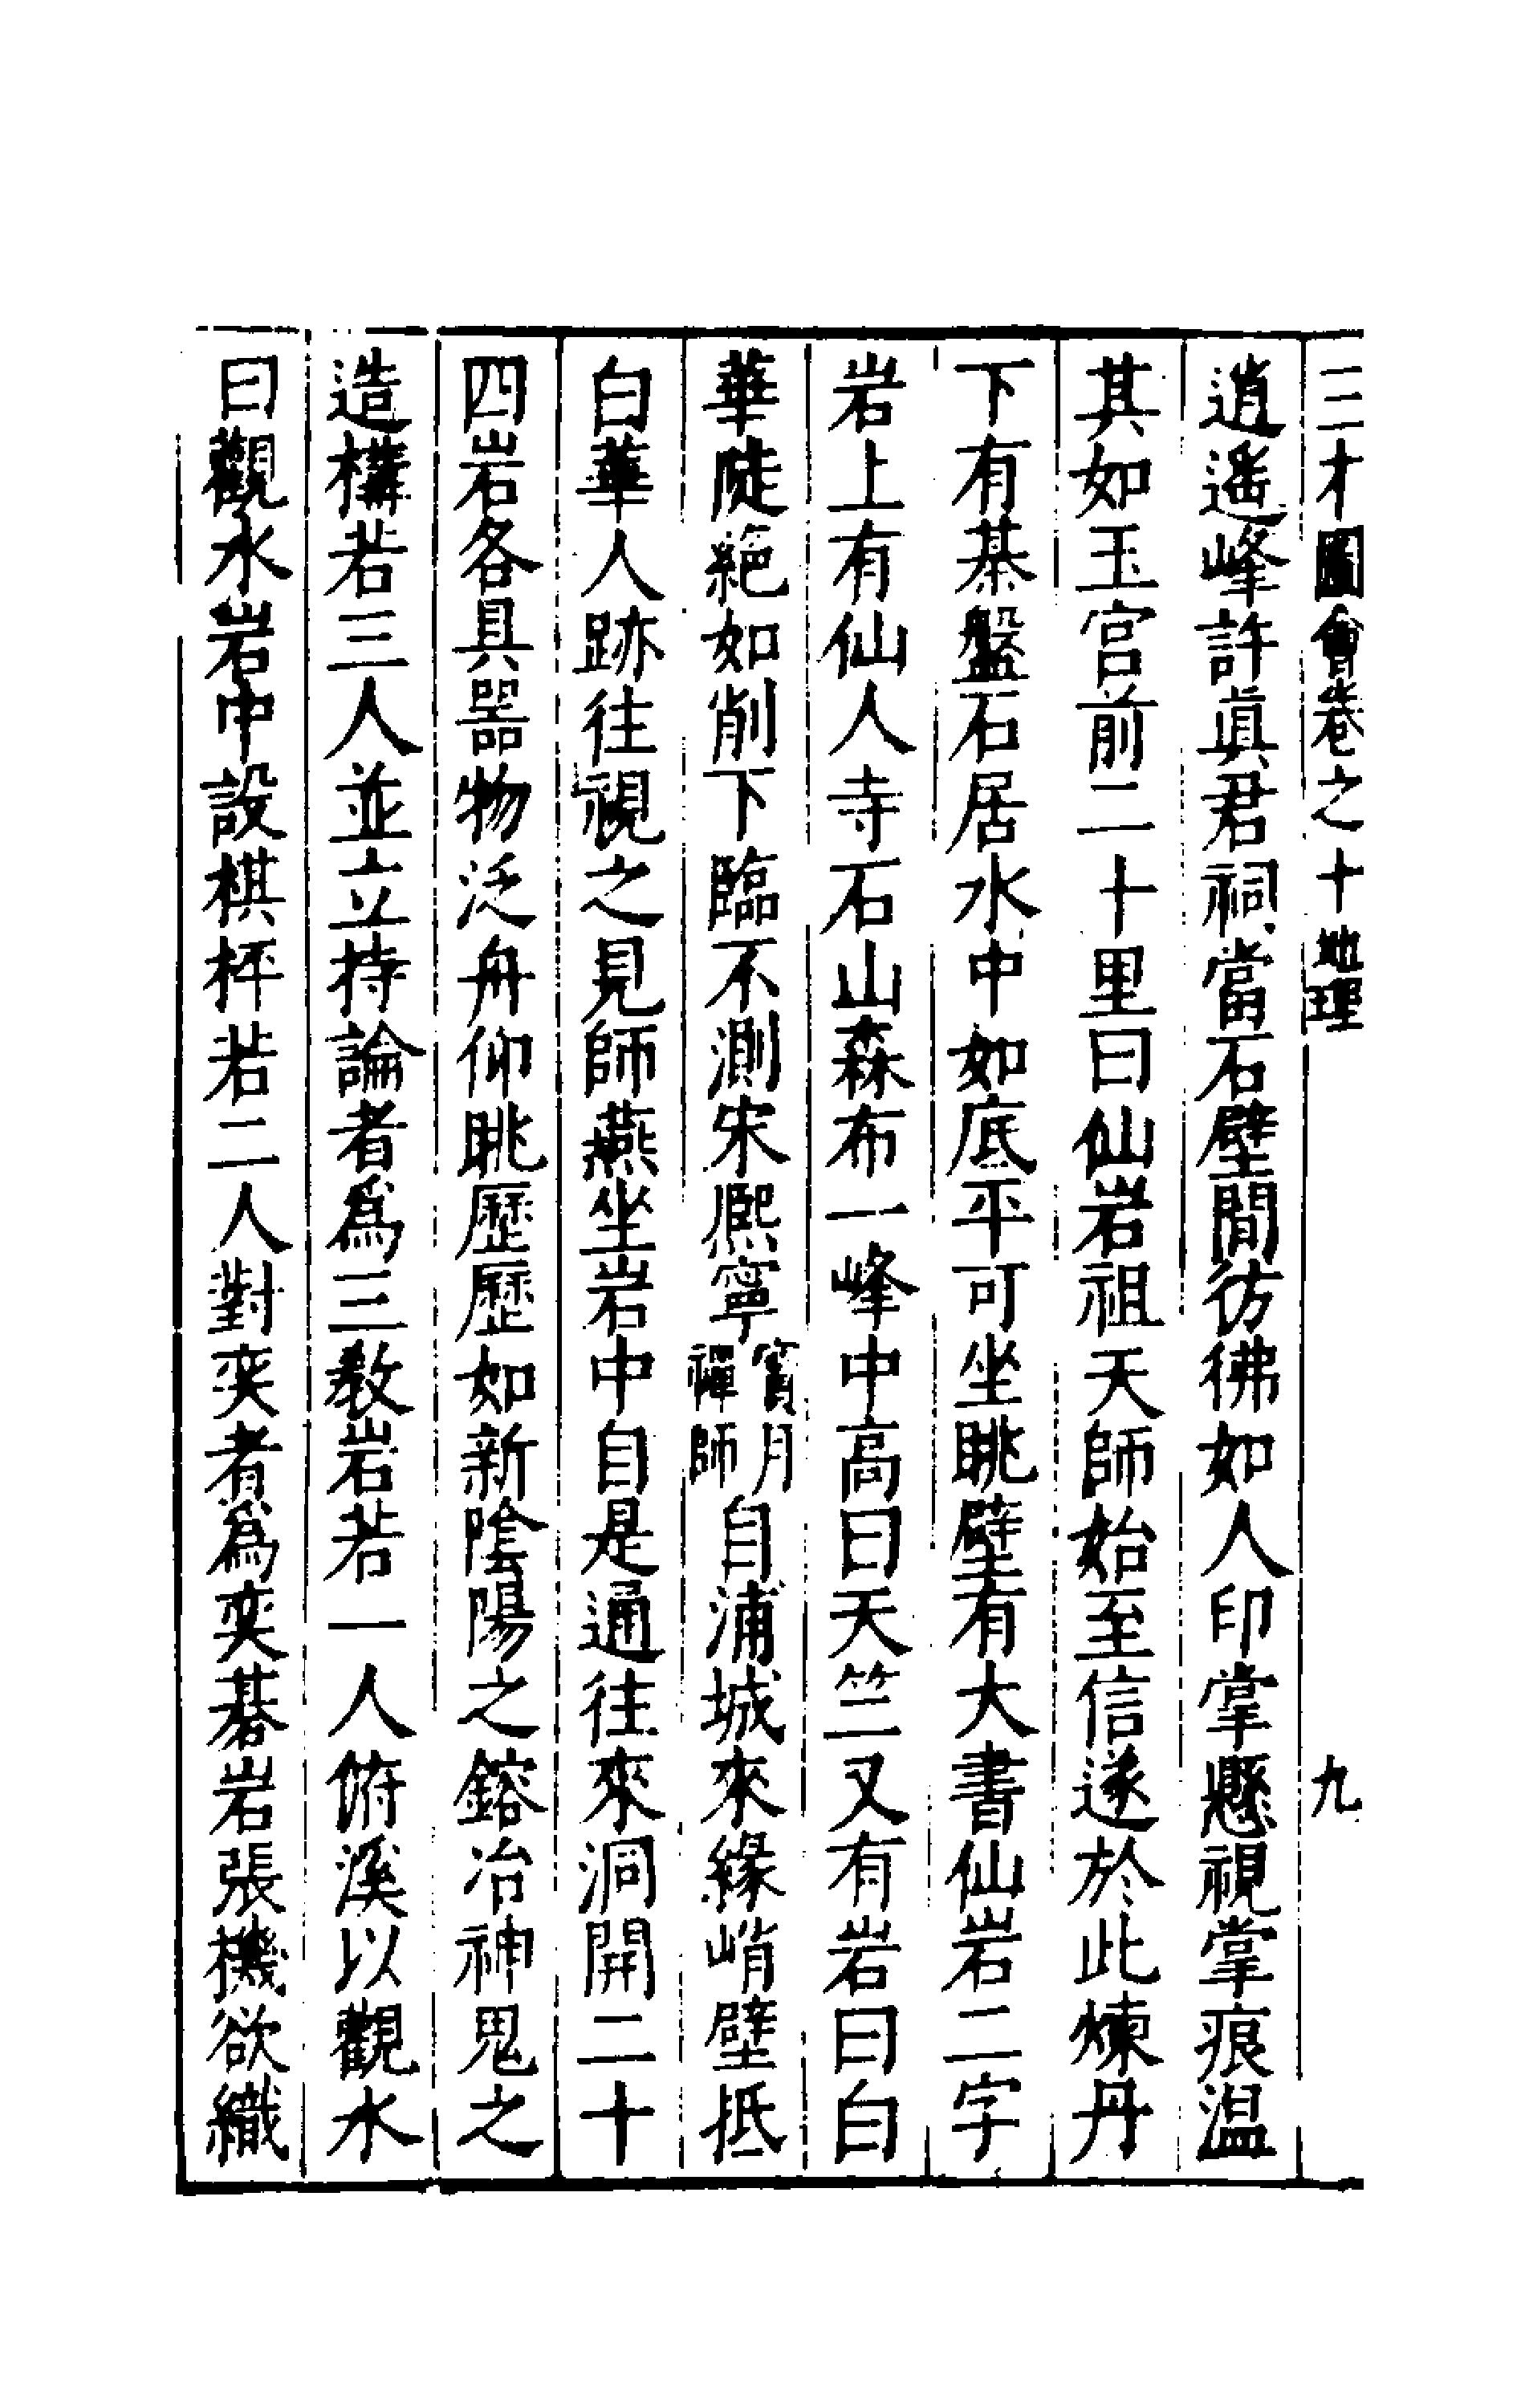 三才圖會卷之十 地理 九
逍遙峰許眞君祠當石壁間彷彿如人印掌懸視掌痕温
其如玉宫前二十里曰仙岩祖天師始至信遂於此煉丹
下有棊盤石居水中如底平可坐眺壁有大書仙岩二字
岩上有仙人寺石山森布一峰中高曰天竺又有岩曰白
華陡絕如削下臨不測宋熈寧寳月禪師自浦城來緣峭壁抵
白華人跡往視之見師燕坐岩中自是通往來洞開二十
四岩各具器物泛舟仰眺歷歷如新隂陽之鎔冶神鬼之
造構若三人並立持論者爲三教岩若一人俯溪以觀水
曰觀水岩中設棋枰若二人對奕者爲奕碁岩張機欲織